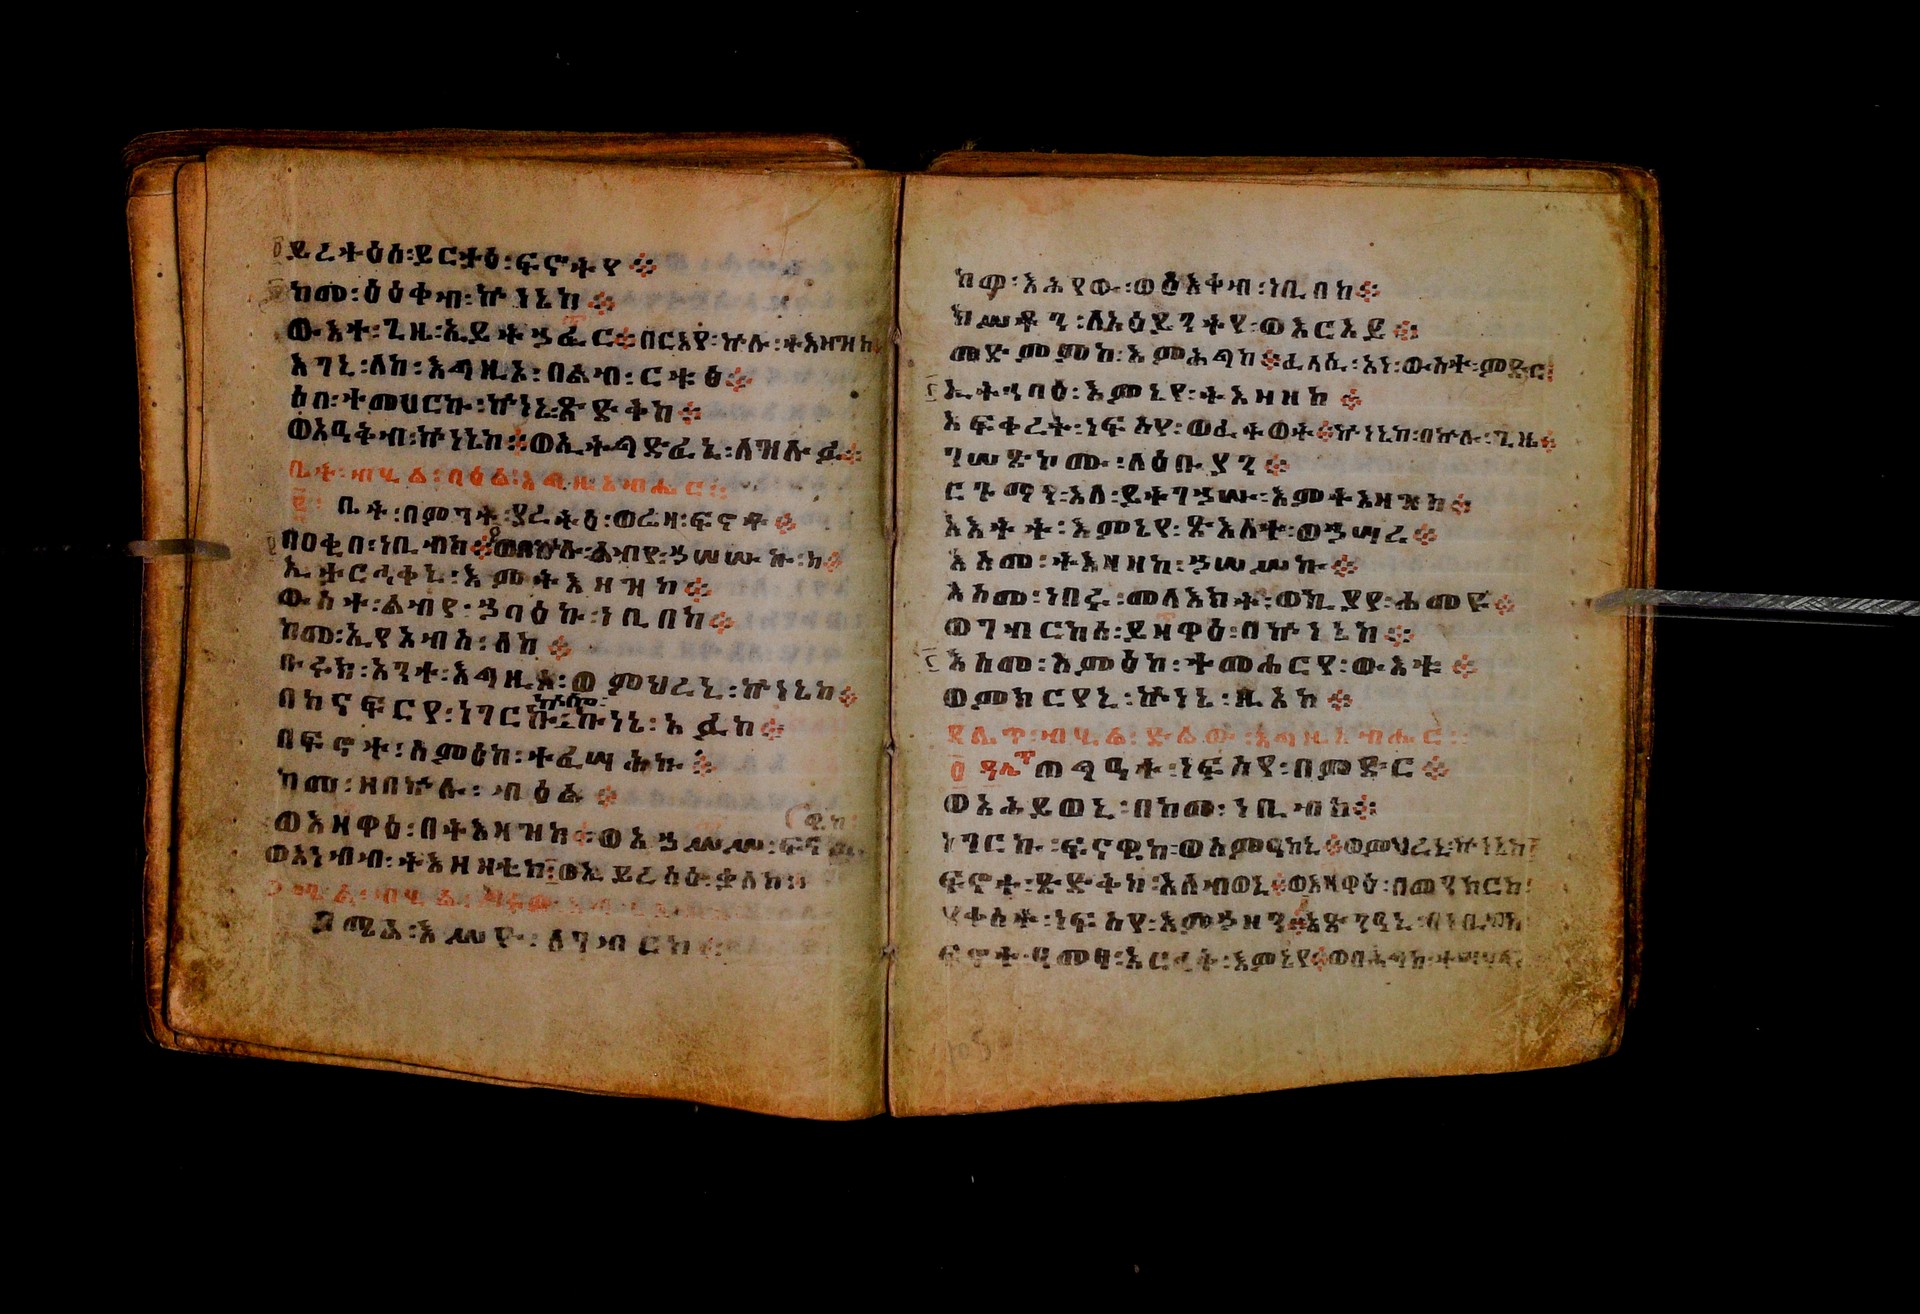 ይረትዕሰ፡ይርታዕ፡ፍኖትየ።
ከመ፡ዕዕቀብ፡ኵነኔከ።
ውእተ፡ጊዜ፡ኢይትኃፈር።በርእየ፡ኵሉ፡ትእዛዝከ
እገኒ፡ለከ፡እግዚኦ፡በልብ፡ርቱዕ።
ዕበ፡ተመሀርኩ፡ኵነኔ፡ጽድቅከ።
ወእዔቅብ፡ኵነኔከ።ወኢትግድፈኒ፡ለዝሉፉ።
ቤት፡ብሂል፡በዕል፡እግዚእብሔር።
፪፡ ቤት፡በምንት፡ያረትዕ፡ወሬዛ፡ፍኖቶ።
በዐቂበ፡ነቢብከ።ወበኵሉ፡ልብየ፡ኃሠሥኩ፡ከ።
ኢታርሕቀኒ፡እምትእዛዝከ።
ውስተ፡ልብየ፡ኃባዕኩ፡ነቢበከ።
ከመ፡ኢየአብስ፡ለከ።
ቡሩክ፡አንተ፡እግዚኦ፡ወምህረኒ፡ኵነኔከ።
ኵሎ፡
በከናፍርየ፡ነገርኩ፡ኵነኔ፡አፉከ።
በፍኖተ፡ስምዕከ፡ተፈሣሕኩ።
ከመ፡ዘበኵሉ፡ብዕል።
ዊከ፡
ወእዛዋዕ፡በትእዛዝከ።ወእኃሥሥ፡ፍና
ወእነብብ፡ትእዛዛቲከ።ወኢይረስዕ፡ቃለከ።
ጋሜል፡ብሂል፡
ጋሜል፡እሥዮ፡ለገብርከ።
ከመ፡እሕየው፡ወዕእቀብ፡ነቢበከ።
ክሥቶን፡ለአዕይንትየ፡ወእርአይ።
መድምምከ፡እምሕግከ።ፈላሲ፡አነ፡ውስተ፡ምድር
ኢትኅባዕ፡እምኔየ፡ትእዛዘከ።
አፍቀረት፡ነፍስየ፡ወፈተወት።ኵነኔከ፡በኵሉ፡ጊዜ።
ገሠጽኮሙ፡ለዕቡያን።
ርጉማን፡እለ፡ይትገኃሡ፡እምትእዛዝከ።
አእትት፡እምኔየ፡ጽእለት፡ወኃሣረ።
እስመ፡ትእዛዘከ፡ኃሠሥኩ።
እስመ፡ነበሩ፡መላእክት፡ወኪያየ፡ሐመዩ።
ወገብርከሰ፡ይዛዋዕ፡በኵነኔከ።
እስመ፡ስምዕከ፡ተመሐርየ፡ውእቱ።
ወምክርየኒ፡ኵነኔ፡ዚአከ።
ዳሌጥ፡ብሂል፡ድልው፡እግዚአብሔር።
፬ ዳሌጥ ጠግዓት፡ነፍስየ፡በምድር።
ወአሕይወኒ፡በከመ፡ነቢብከ።
ነገርኩ፡ፍናዊከ፡ወሰማዕከኒ።ወምህረኒ፡ኵነኔከ፡
ፍኖተ፡ጽድቅከ፡አለብወኒ።ወእዛዋዕ፡በመንክርከ፡
ደቀሰት፡ነፍስየ፡እምኃዘን።አጽንዓኒ፡በነቢብከ
ፍኖተ፡ዓመፃ፡አርሕቅ፡እምኔየ።ወበሕግከ፡